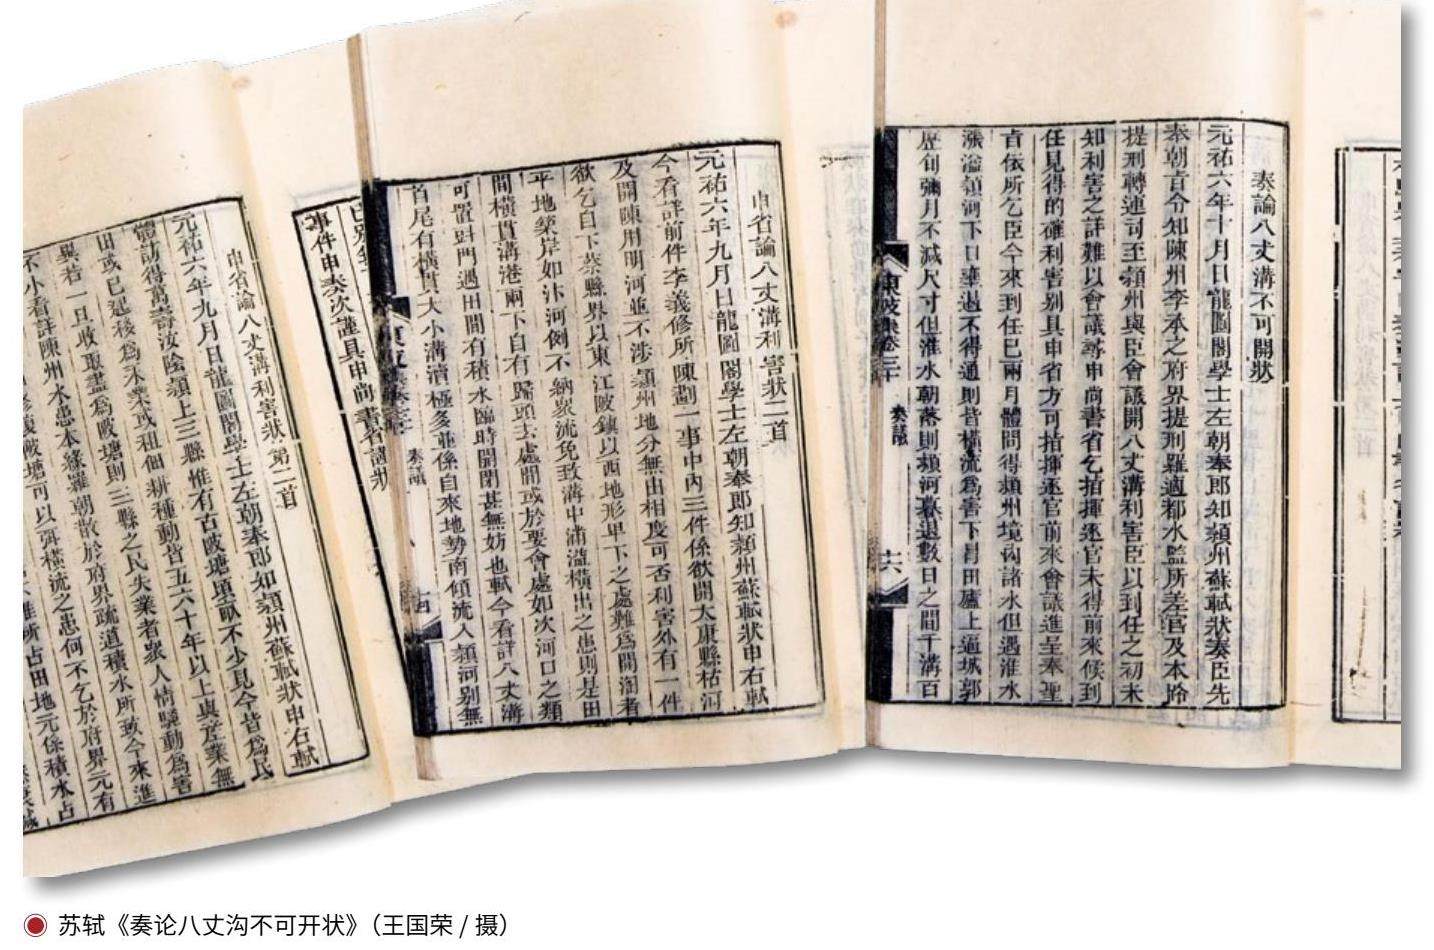 奏論八丈溝不可開狀
元祐六年十月日龍圖閣學士左朝奉郎知潁州蘇軾狀奏臣先
奉朝旨令知陳州李承之府界提刑羅適都水監所差官及本路
提刑轉運司至潁州與臣會議開八丈溝利害臣以到任之初未
知利害之詳難以會議尋申尚書省乞指揮逐官未得前來候到
任見得的確利害別具申省方可指揮逐官前來會議進呈奉聖
旨依所乞臣今來到任已兩月體問得潁州境內諸水但遇淮水
漲溢潁河下口壅遏不得通則皆橫流為害下冒田廬上逼城郭
歷旬彌月不減尺寸但淮水朝落則潁河暮退數日之間千溝百
東坡集卷三十
奏議
六
申省論八丈溝利害狀二首
元祐六年九月日龍圖閣學士左朝奉郎知潁州蘇軾狀申右軾
今看詳前件李義修所陳劃一事中內三件係欲開太康縣枯河
及開陳州明河並不涉潁州地分無由相度可否利害外有一件
欲乞自下蔡縣界以東江陂鎮以西地形卑下之處難為開淘者
平地築岸如汴河例不納眾流免致溝中浦溢橫出之患則是田
間橫貫溝港兩下自有歸頭去處間或於要會處如次河口之類
可置斗門遇田間有積水臨時開閉甚無妨也軾今看詳八丈溝
首尾有橫貫大小溝瀆極多並係自來地勢南傾流入潁河別無
奏議
事件申奏次謹具申尚書省謹狀
申省論八丈溝利害狀第二首
元祐六年九月日龍圖閣學士左朝奉郎知潁州蘇軾狀申右軾
體訪得萬壽汝陰潁上三縣惟有古陂塘頃畝不少見今皆為民
田或已起移為永業或租佃耕種動皆五六十年以上與產業無
異若一旦收取盡為陂塘則三縣之民失業者眾人情騷動為害
不小看詳陳州水患本緣羅朝散於府界疏道積水所致今來進
苏轼《奏论八丈沟不可开状》（王国荣 / 摄）